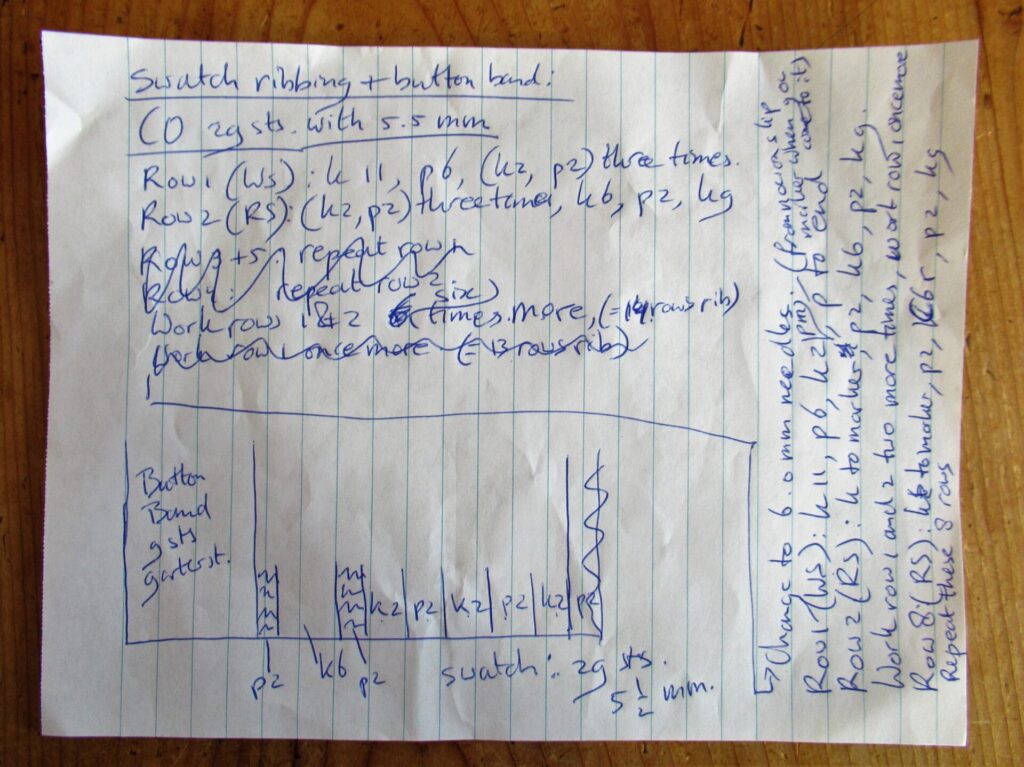 Swatch ribbing + button band:
CO 29 sts. with 5.5 mm
Row 1 (WS): k 11, p6, (k2, p2) three times.
Row 2 (RS): (k2, p2) three times, k6, p2, k9
Rows 3 + 5: repeat row 1
Row 4: repeat row 2
Work rows 1 & 2 6 (six) times more, (= 14 rows rib)
Work row 1 once more (= 13 rows rib)
Button
Band
9 sts
garter st.
k2 p2 k2 p2 k2 p2
p2 k6 p2
swatch: 29 sts.
5 1/2 mm.
→ Change to 6.0 mm needles. (from now on slip
marker when you
come to it)
Row 1 (WS): k 11, p6, k2, pm, p to end
Row 2 (RS): k to marker, p2, k6, p2, k9.
Work row 1 and 2 two more times, work row 1 once more
Row 8 (RS): k to marker, p2, k6 r, p2, k9
Repeat these 8 rows